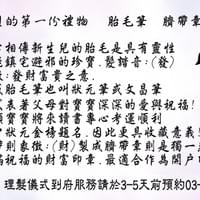 的第一份禮物 胎毛筆 臍帶章
相傳新生兒的胎毛是具有靈性
能鎮宅避邪的珍寶.髮諧音:(發)
徵:發財富貴之意.
胎毛筆也叫狀元筆或文昌筆
代表著父母對寶寶深深的愛與祝福!
願寶寶將來讀書專心考運順利
中狀元金榜題名.因此更具收藏意義
章則象徵:(財)製成臍帶章則是獨一無
滿祝福的財富印章.最適合作為開戶印
理髮儀式到府服務請於3-5天前預約03-